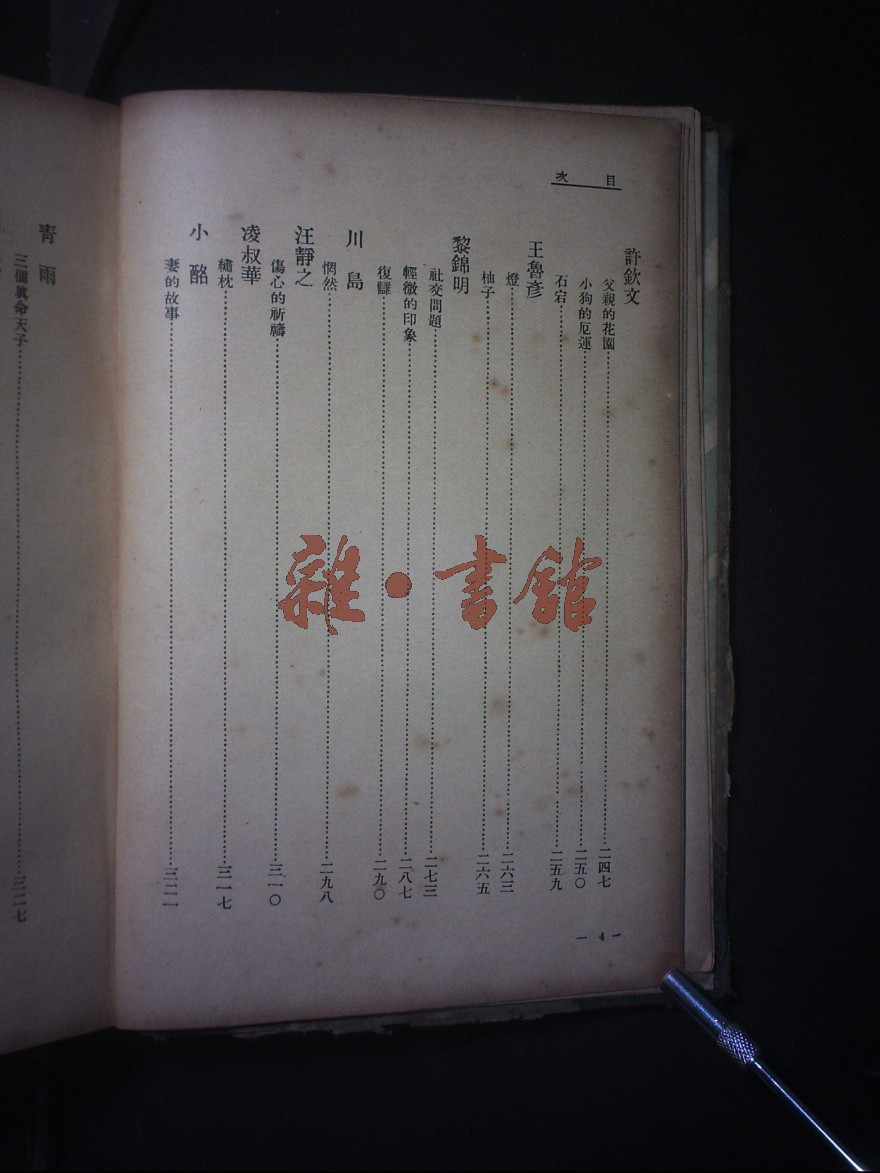 目次
許欽文
父親的花園……二四七
小狗的厄運……二五〇
石宕……二五九
王魯彥
燈……二六三
柚子……二六五
黎錦明
社交問題……二七三
輕微的印象……二八七
復讎……二九〇
川島
惘然……二九八
汪靜之
傷心的祈禱……三一〇
凌叔華
繡枕……三一七
小酩
妻的故事……三二一
— 4 —
青雨
三個真命天子……三二七
雜·書館